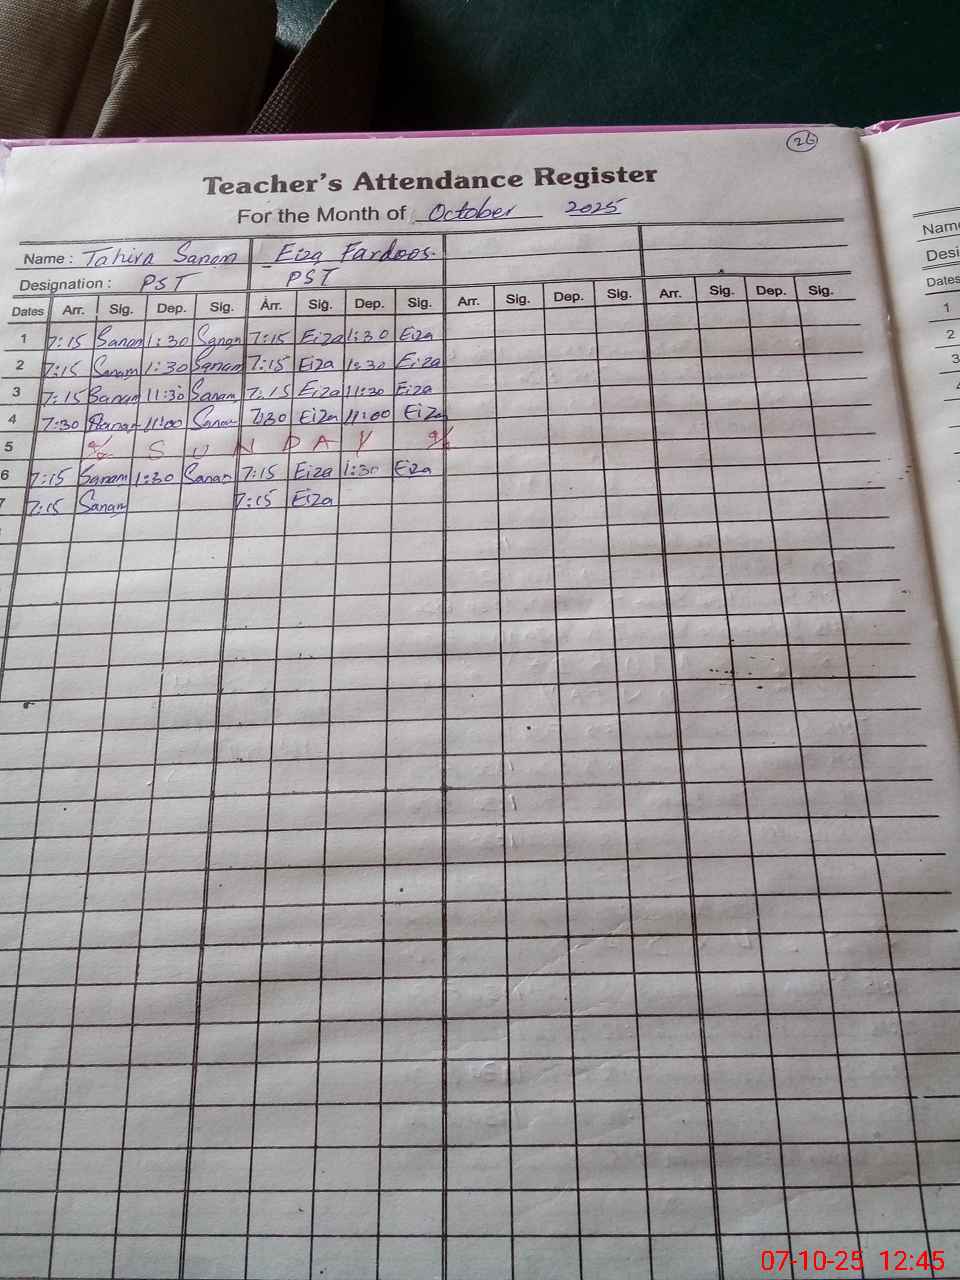 26
Teacher's Attendance Register
For the Month of October 2025
Name : Tahira Sanam Eiza Fardoos. Name
Designation : PST PST Desi
Dates Arr. Sig. Dep. Sig. Arr. Sig. Dep. Sig. Arr. Sig. Dep. Sig. Arr. Sig. Dep. Sig. Dates
1 7:15 Sanam 1:30 Sanam 7:15 Eiza 1:30 Eiza 1
2 7:15 Sanam 1:30 Sanam 7:15 Eiza 1:30 Eiza 2
3 7:15 Sanam 11:30 Sanam 7:15 Eiza 11:30 Eiza 3
4 7:30 Sanam 11:00 Sanam 7:30 Eiza 11:00 Eiza
5 SUNDAY
6 7:15 Sanam 1:30 Sanam 7:15 Eiza 1:30 Eiza
7 7:15 Sanam 7:15 Eiza
07-10-25 12:45